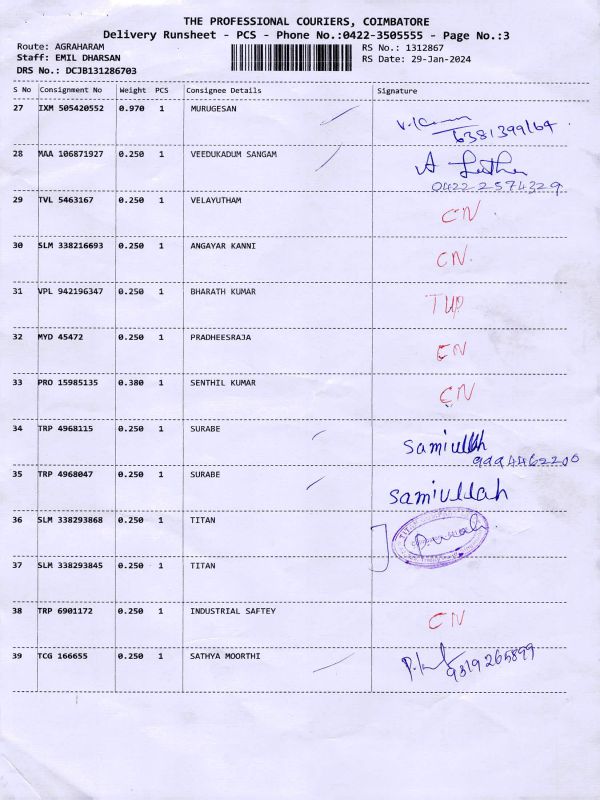 THE PROFESSIONAL COURIERS, COIMBATORE
Delivery Runsheet - PCS - Phone No.:0422-3505555 - Page No.:3
Route: AGRAHARAM RS No.: 1312867
Staff: EMIL DHARSAN RS Date: 29-Jan-2024
DRS No.: DCJB131286703
S No Consignment No Weight PCS Consignee Details Signature
27 IXM 505420552 0.970 1 MURUGESAN
6381399169
28 MAA 106871927 0.250 1 VEEDUKADUM SANGAM A
0422 2574329
29 TVL 5463167 0.250 1 VELAYUTHAM CN
30 SLM 338216693 0.250 1 ANGAYAR KANNI CN
31 VPL 942196347 0.250 1 BHARATH KUMAR TUP
32 MYD 45472 0.250 1 PRADHEESRAJA CN
33 PRO 15985135 0.380 1 SENTHIL KUMAR CN
34 TRP 4968115 0.250 1 SURABE Samiullah
9994462200
35 TRP 4968047 0.250 1 SURABE Samiullah
36 SLM 338293868 0.250 1 TITAN
37 SLM 338293845 0.250 1 TITAN
38 TRP 6901172 0.250 1 INDUSTRIAL SAFTEY CN
39 TCG 166655 0.250 1 SATHYA MOORTHI
9319265899